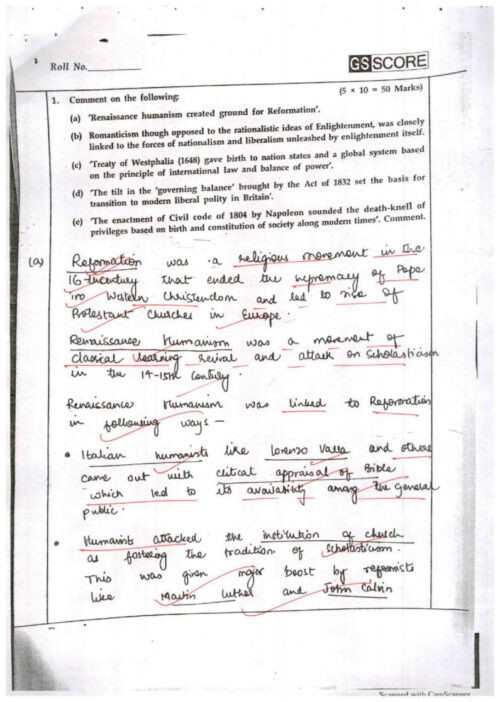 Roll No.
GS SCORE
(5 × 10 = 50 Marks)
1. Comment on the following:
(a) 'Renaissance humanism created ground for Reformation'.
(b) Romanticism though opposed to the rationalistic ideas of Enlightenment, was closely
linked to the forces of nationalism and liberalism unleashed by enlightenment itself.
(c) 'Treaty of Westphalia (1648) gave birth to nation states and a global system based
on the principle of international law and balance of power'.
(d) 'The tilt in the 'governing balance' brought by the Act of 1832 set the basis for
transition to modern liberal polity in Britain'.
(e) 'The enactment of Civil code of 1804 by Napoleon sounded the death-knell of
privileges based on birth and constitution of society along modern times'. Comment.
(a) Reformation was a religious movement in the
16th century that ended the supremacy of Pope
in Western Christendom and led to rise of
Protestant Churches in Europe.
Renaissance Humanism was a movement of
classical learning revival and attack on Scholasticism
in the 14-15th Century.
Renaissance Humanism was linked to Reformation
in following ways –
• Italian humanists like Lorenzo Valla and others
came out with critical appraisal of Bible
which led to its availability among the general
public.
• Humanists attacked the institution of church
as fostering the tradition of Scholasticism.
This was given major boost by reformists
like Martin Luther and John Calvin
Scanned with CamScanner